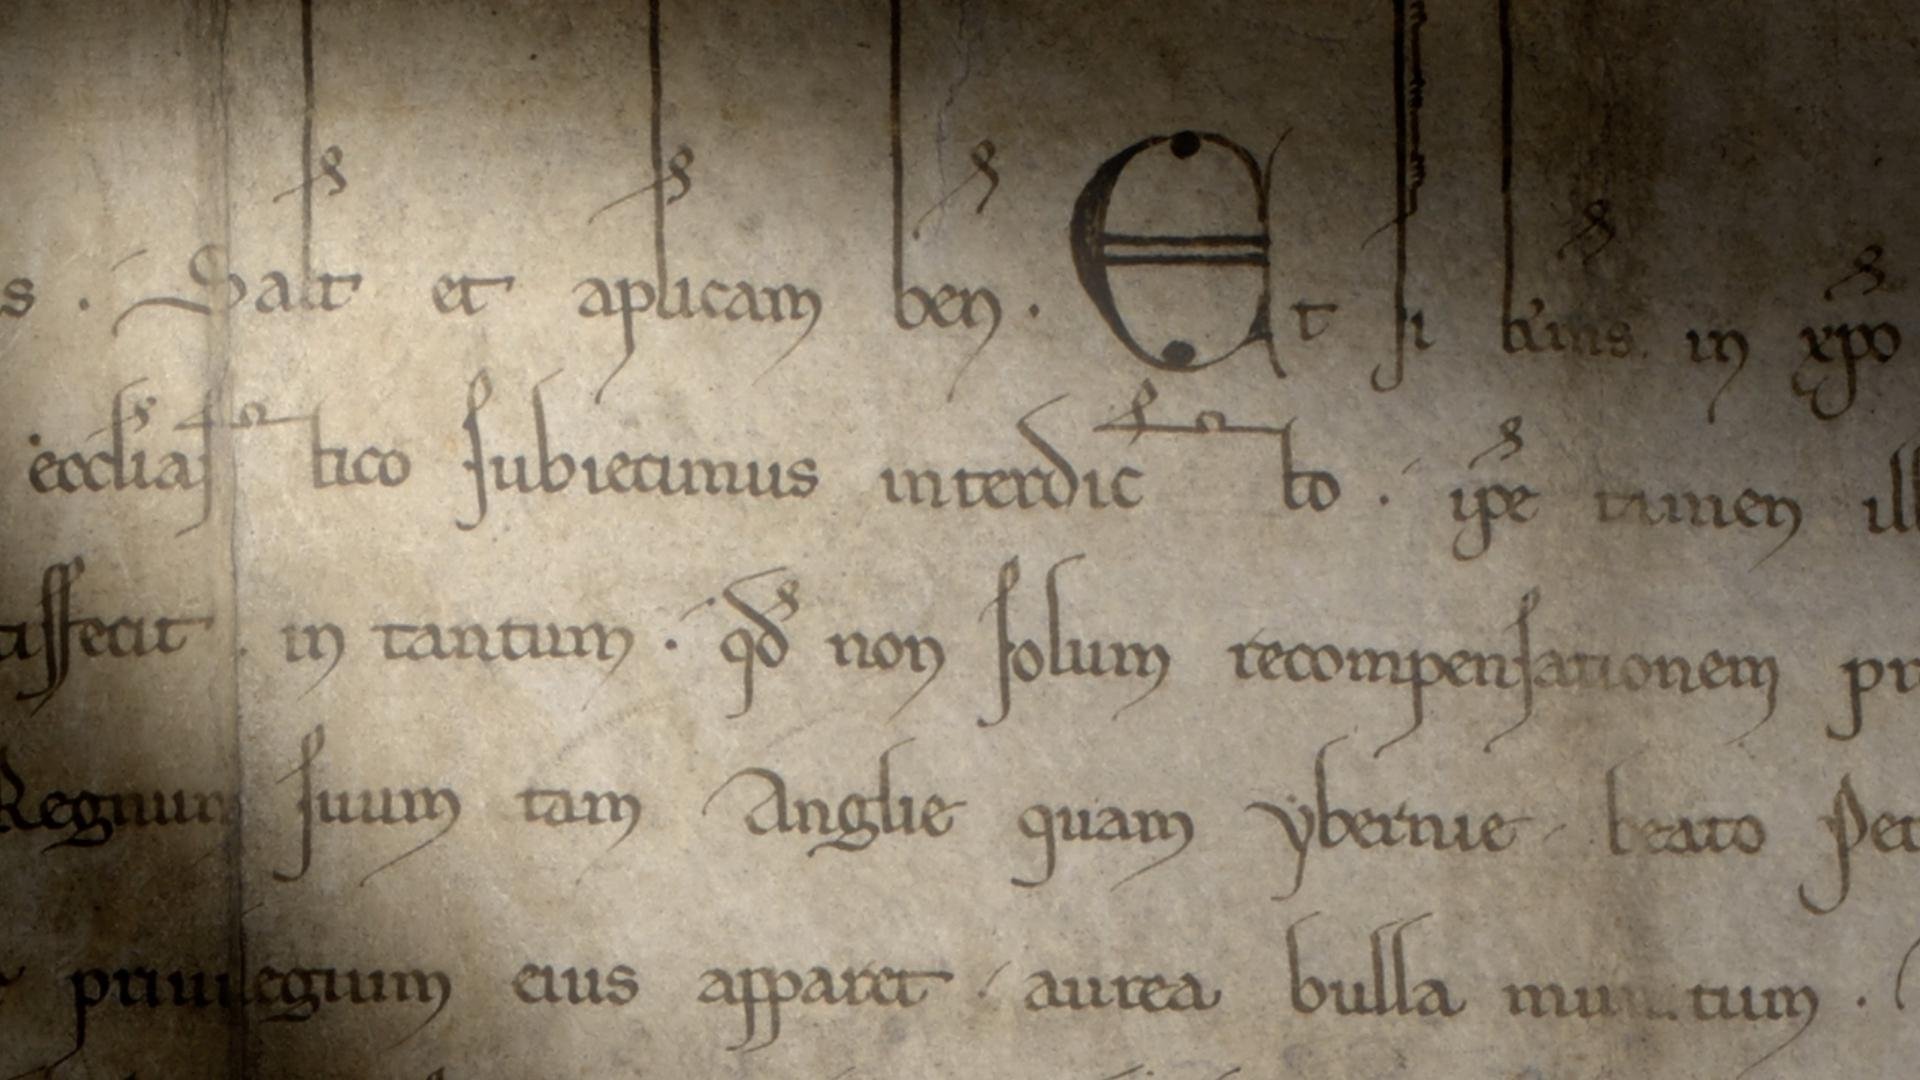 s . Salt et aplicam ben . Et si k'mus in xpo
eccliastico subiecimus interdicto . ipe tamen ill
tisfecit . in tantum . qd non solum recompensationem pr
Regnum suum tam Anglie quam ybernie . beato Pet
privilegium eius apparet . aurea bulla munitum .